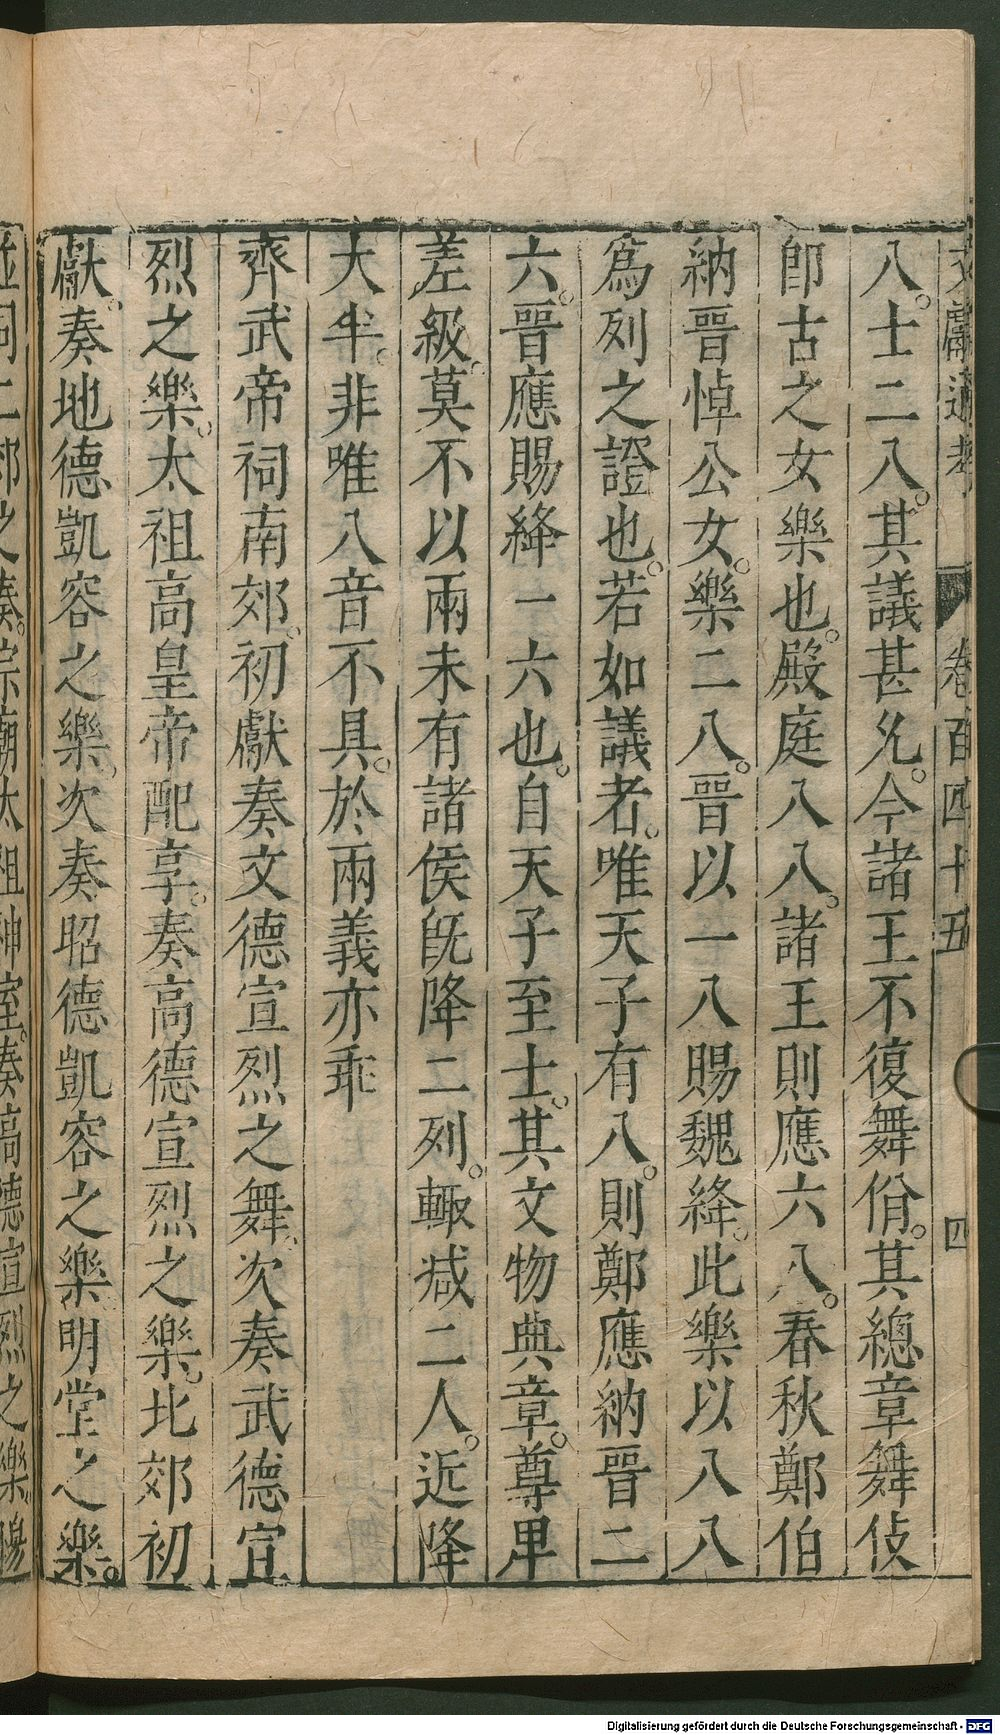 文獻通考 卷百四十五 四
八。士二八。其議甚允。今諸王不復舞佾。其總章舞伎
卽古之女樂也。殿庭八八。諸王則應六八。春秋鄭伯
納晉悼公女。樂二八。晉以一八賜魏絳。此樂以八八
爲列之證也。若如議者。唯天子有八。則鄭應納晉二
六。晉應賜絳一六也。自天子至士。其文物典章。尊卑
差級。莫不以兩未有諸侯旣降二列。輙减二人。近降
大半。非唯八音不具。於兩義亦乖
齊武帝祠南郊。初獻奏文德宣烈之舞。次奏武德宣
烈之樂。太祖高皇帝配享。奏高德宣烈之樂。北郊初
獻。奏地德凱容之樂。次奏昭德凱容之樂明堂之樂。
並同二郊之奏。宗廟太祖神室。奏高德宣烈之樂。
Digitalisierung gefördert durch die Deutsche Forschungsgemeinschaft - DFG